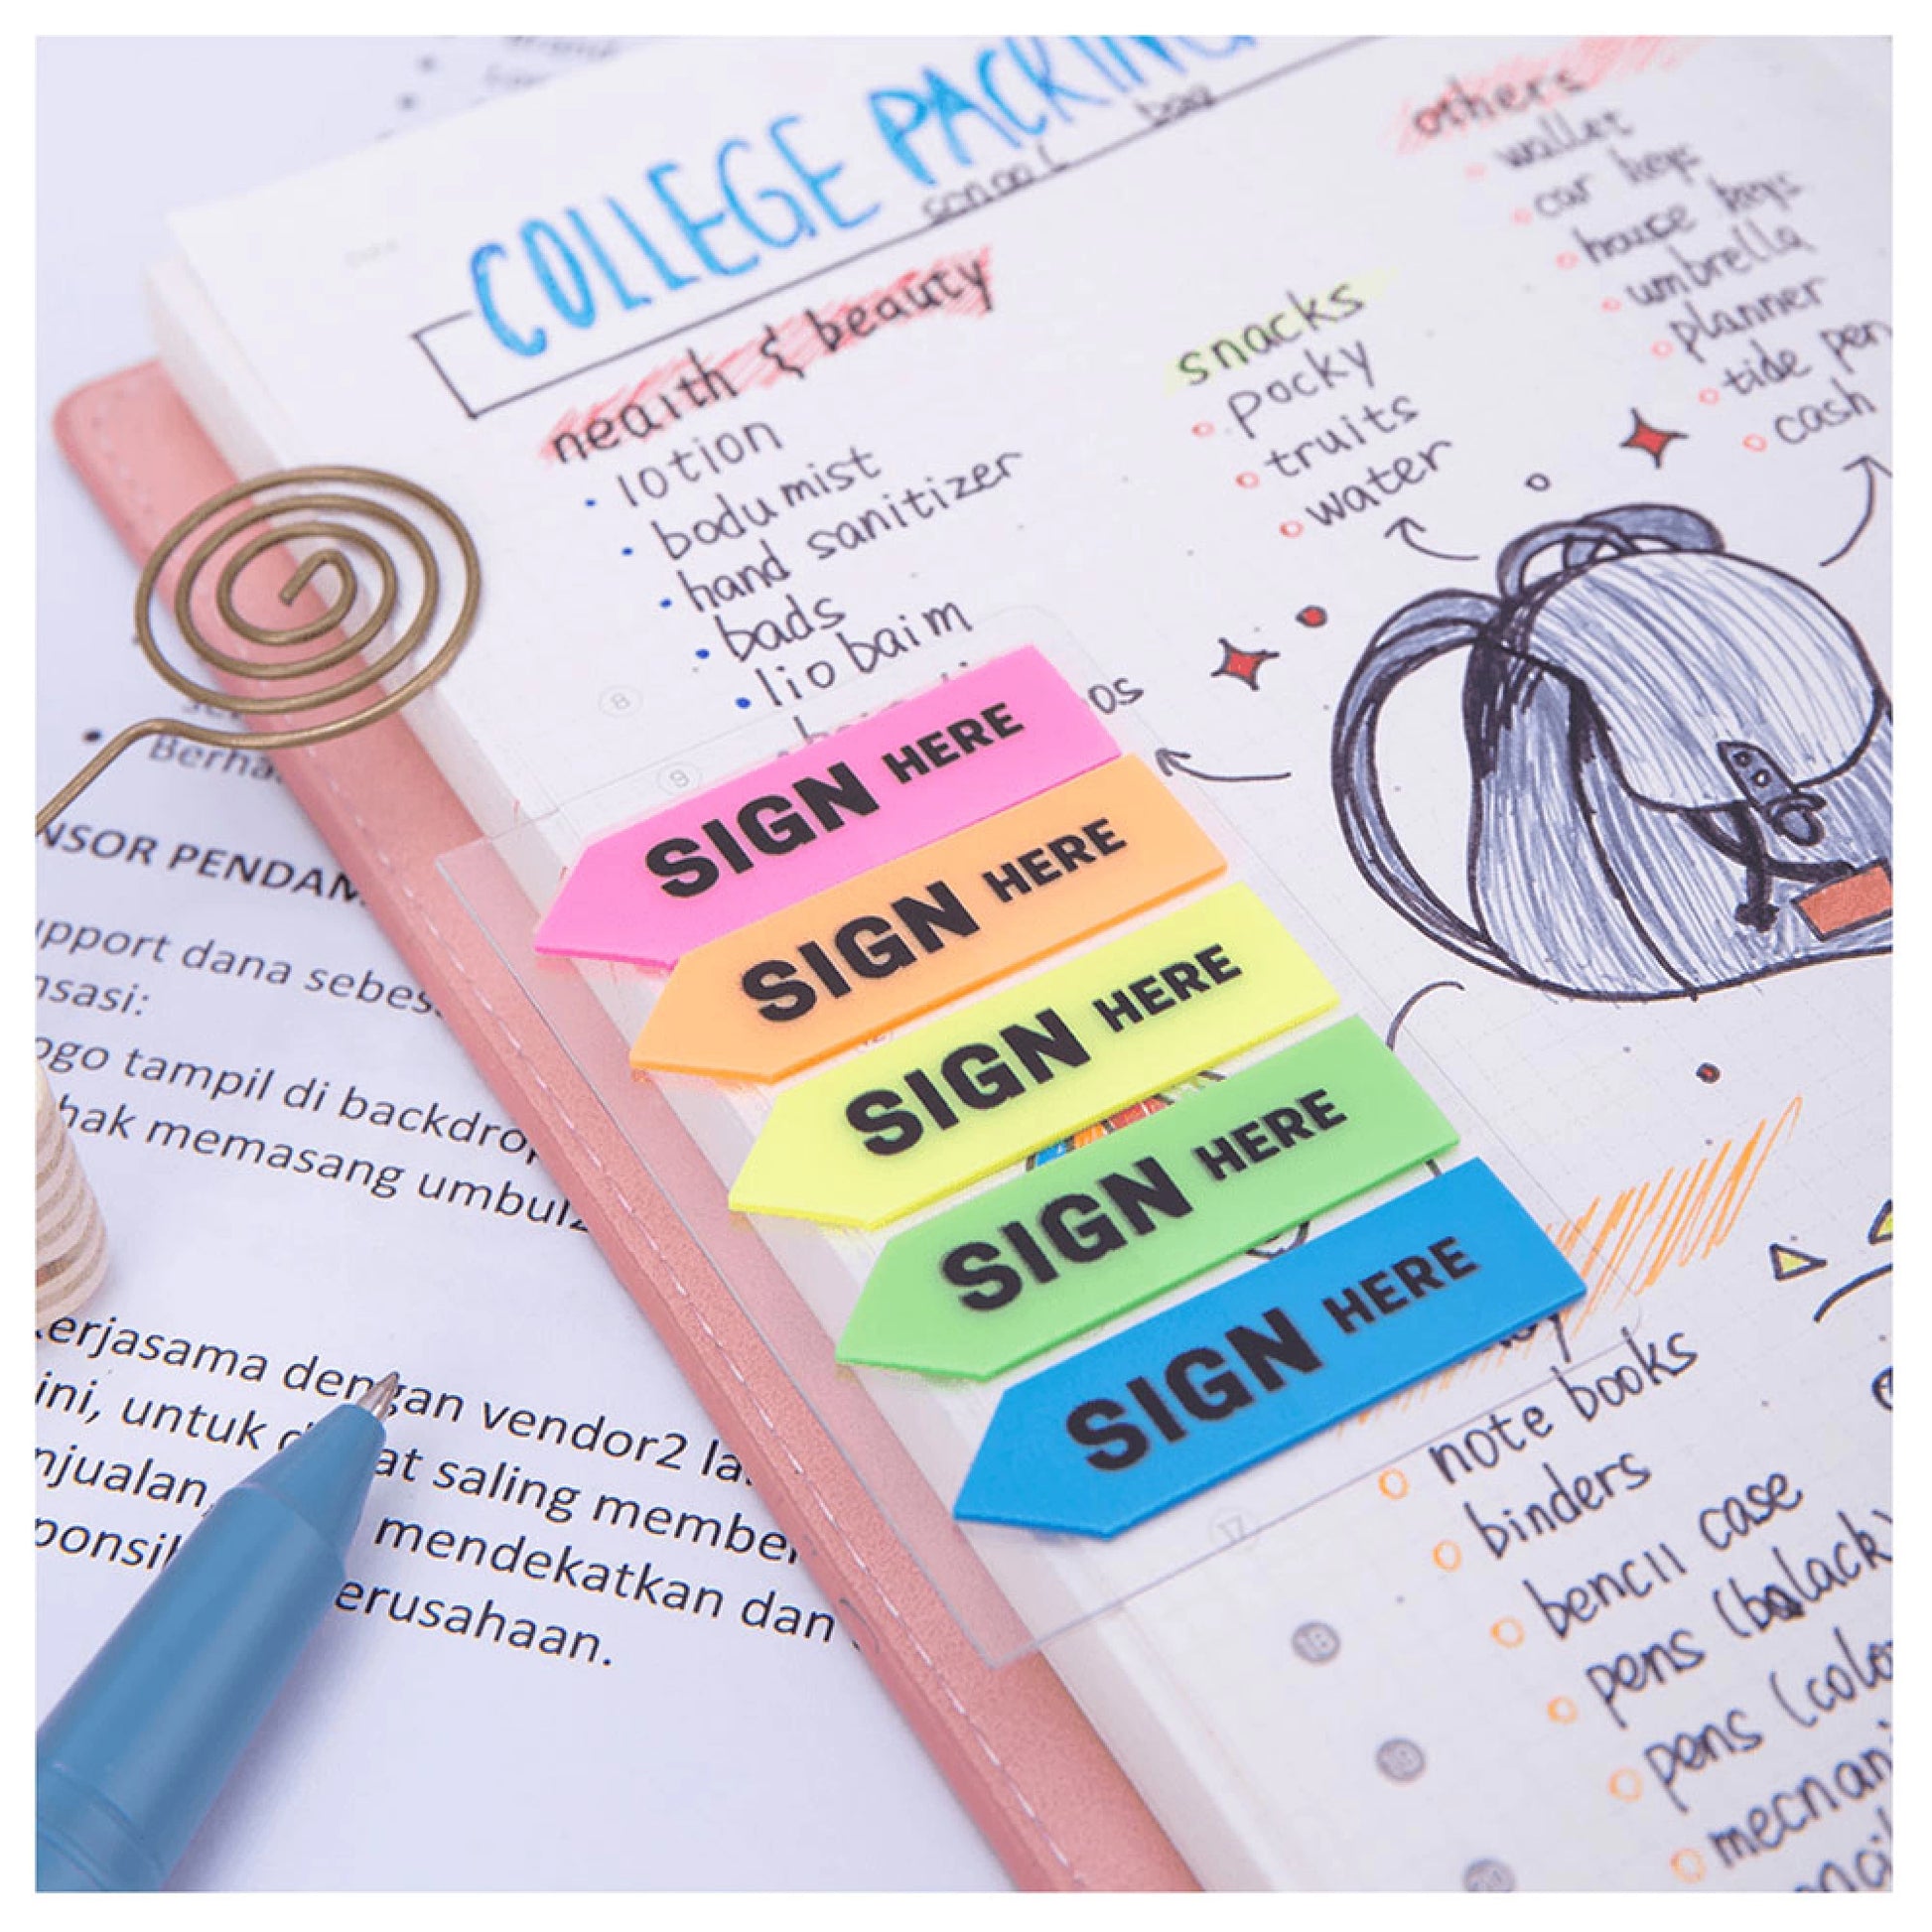 COLLEGE PACKING
school bag
neaith & beauty
lotion
bodu mist
hand sanitizer
bads
lio baim
os
snacks
pocky
truits
water
others
wallet
car keys
house keys
umbrella
planner
tide pen
cash
8
9
SIGN HERE
SIGN HERE
SIGN HERE
SIGN HERE
SIGN HERE
17
note books
binders
bencil case
pens (balack)
pens (colo
mecnani
18
19
20
Berha
NSOR PENDAM
pport dana sebes
nsasi:
ogo tampil di backdro
hak memasang umbul
erjasama dengan vendor2 la
ini, untuk d at saling member
njualan,
ponsi mendekatkan dan
erusahaan.